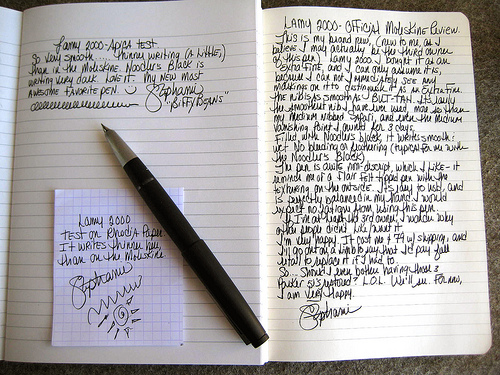 Lamy 2000 - Apica Test
So very smooth.... thinner writing (a little,)
than in the Moleskine. Noodlers Black is
writing very dark. Love it. My new most
awesome favorite pen.
Stephanie
"Biffybeans"
Lamy 2000
Test on Rhodia Paper
It writes thinner here,
than on the Moleskine.
Stephanie
Lamy 2000 - Official Moleskine Review.
This is my brand new, (new to me, as I
believe I may actually be the third owner
of this pen) Lamy 2000. I bought it as an
extra fine, and I can only assume it is,
because I can not immediately see any
markings on it to distinguish it as an extra fine
The nib is smooth as BUT-TAH. It's easily
the smoothest nib I have ever used, more so than
my medium nibbed Safari, and even the medium
Vanishing Point I owned for 3 days.
Filled with Noodlers Black, it writes smooth &
wet. No bleeding or feathering (typical for me with
the Noodlers Black)
The pen is quite non-descript, which I like - it
reminds me of a Flair felt tipped pen with the
texturing on the outside. It's easy to hold, and
is perfectly balanced in my hand. I would
expect no fatigue from using this pen.
If I'm at least the 3rd owner, I wonder why
other people didn't like/want it.
I'm very happy. It cost me $79 w/ shipping, and
I'll go out on a limb to say that I'd pay full
retail to replace it if I had to.
So... Should I even bother having those 3
Parker 51's restored? L.O.L. We'll see. For now,
I am very happy.
Stephanie